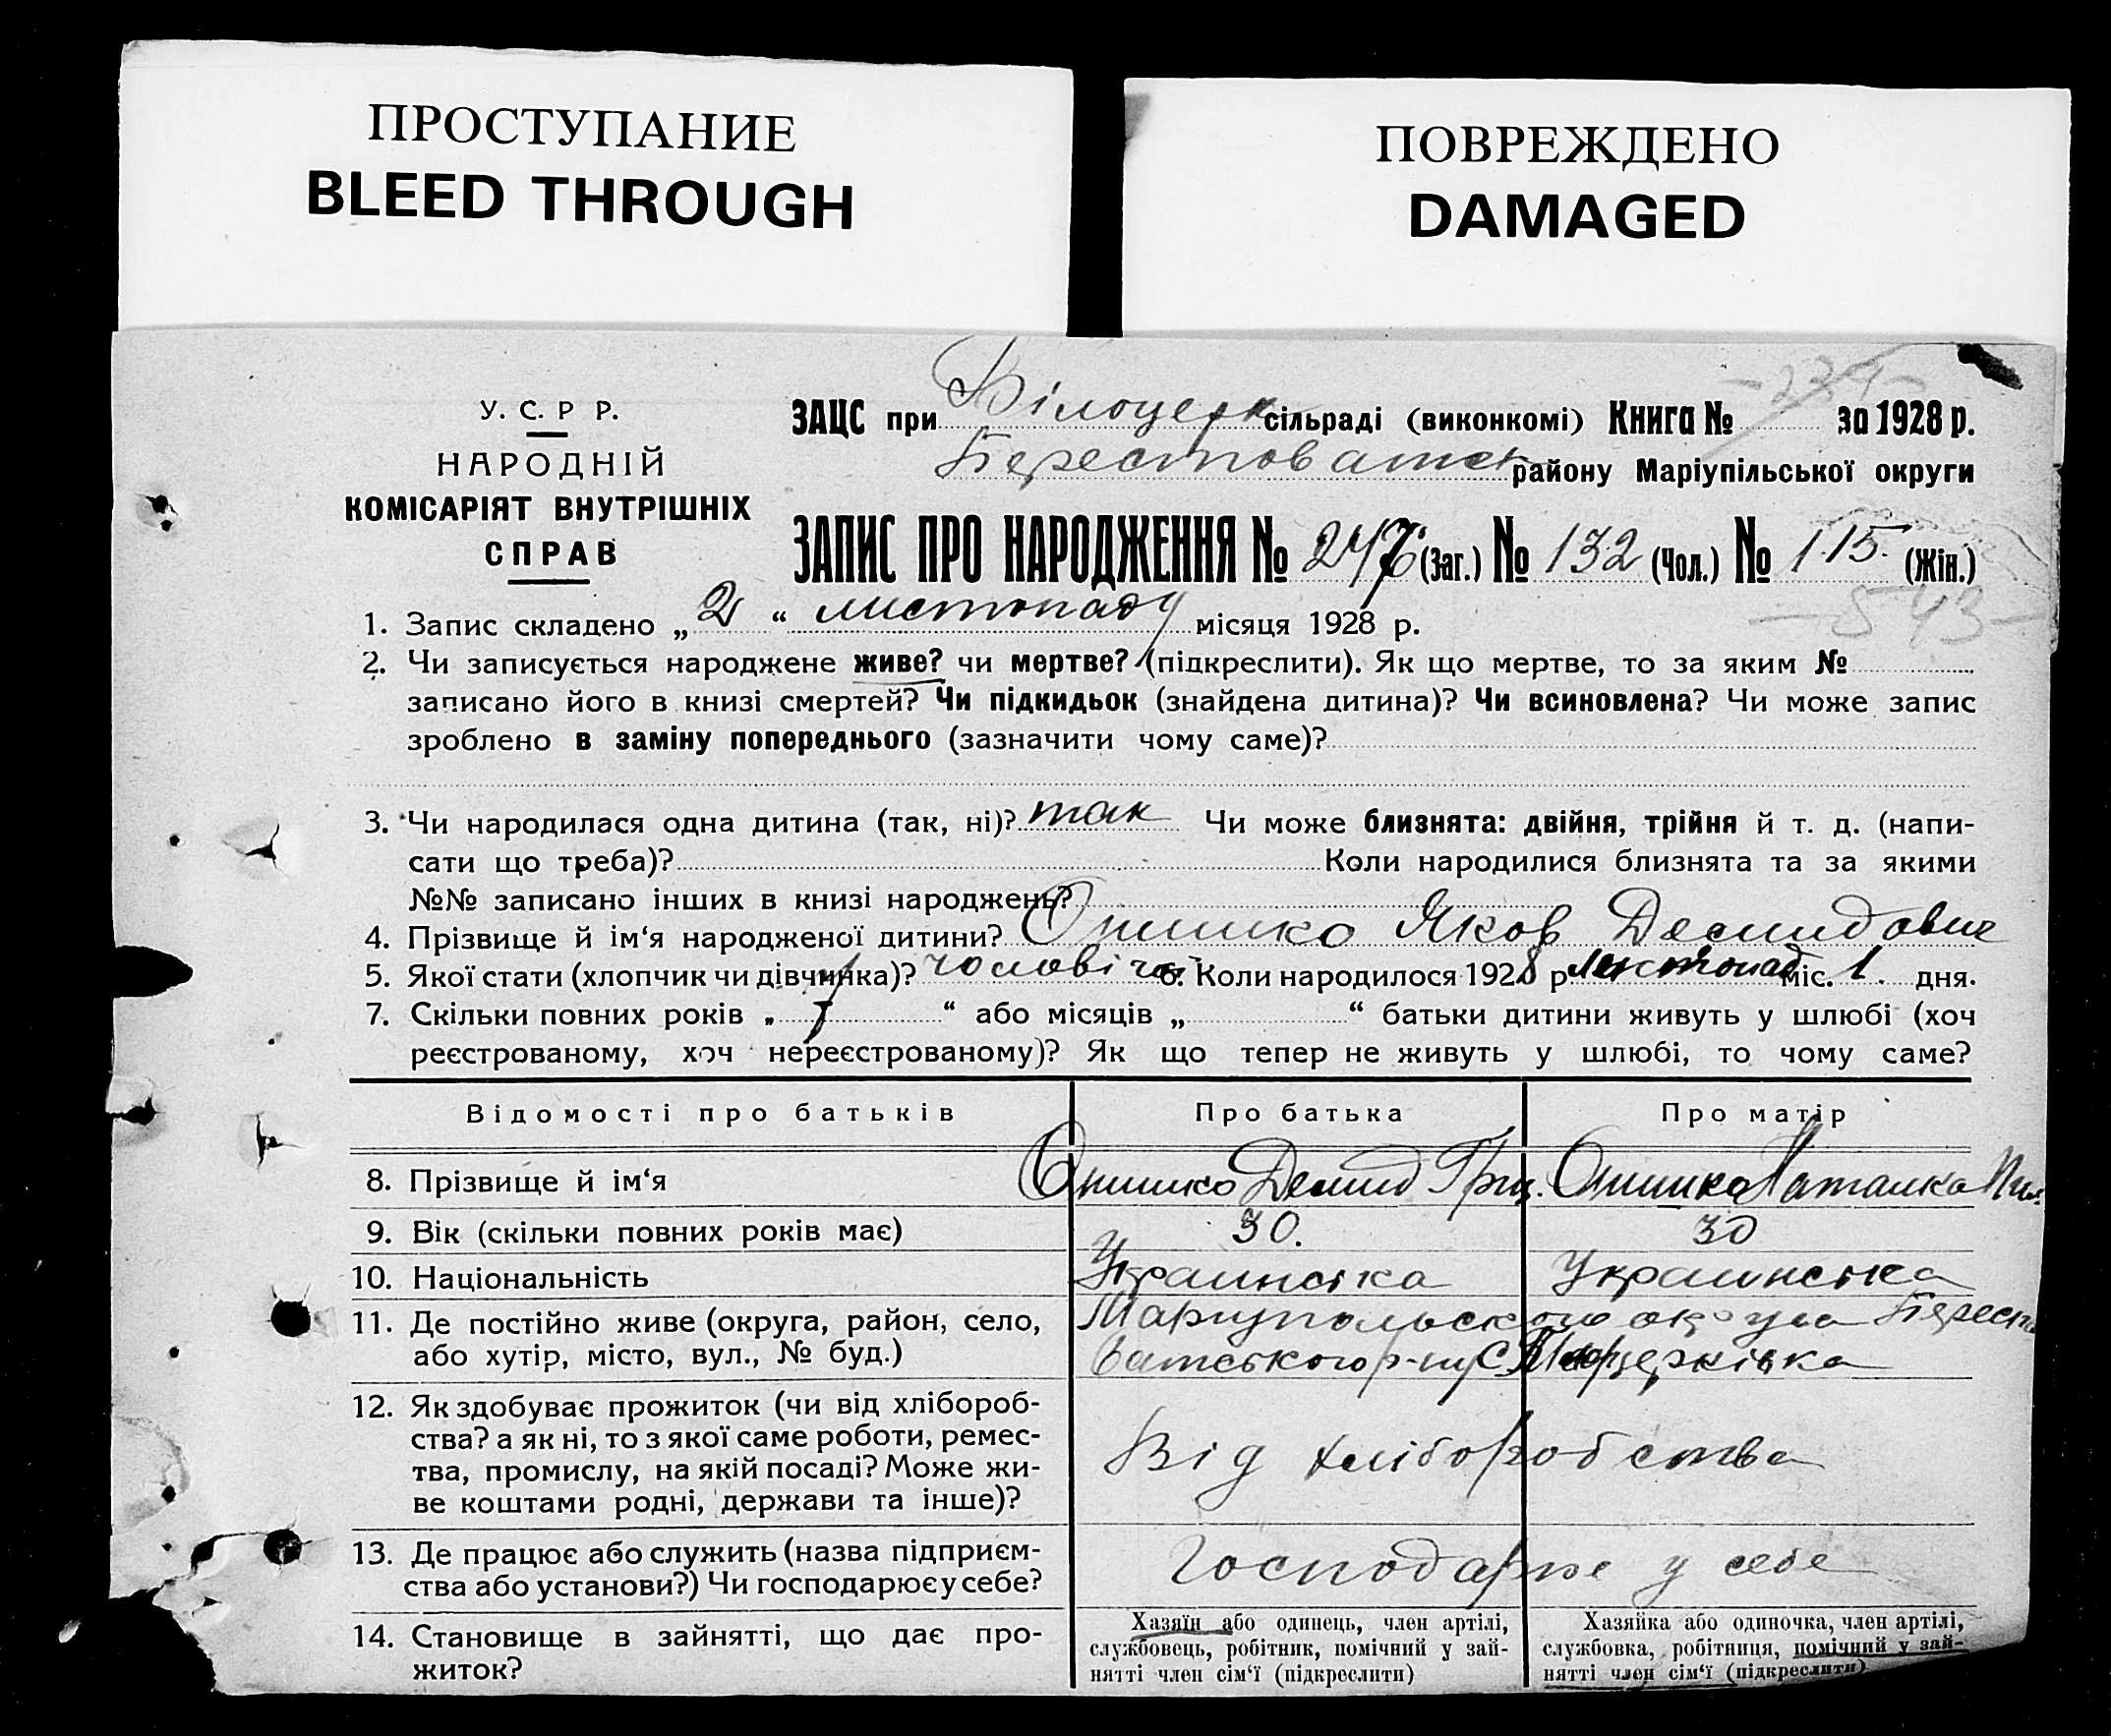 ПРОСТУПАНИЕ
BLEED THROUGH
ПОВРЕЖДЕНО
DAMAGED
У. С. Р Р.
НАРОДНІЙ
КОМІСАРІЯТ ВНУТРІШНІХ
СПРАВ
ЗАЦС при Білоцерк сільраді (виконкомі) Книга № за 1928 р.
Берестоватск району Маріупільської округи
ЗАПИС ПРО НАРОДЖЕННЯ № 247 (Заг.) № 132 (Чол.) № 115 (Жін.)
- 543 -
1. Запис складено „ 2 “ листопаду місяця 1928 р.
2. Чи записується народжене живе? чи мертве? (підкреслити). Як що мертве, то за яким №
записано його в книзі смертей? Чи підкидьок (знайдена дитина)? Чи всиновлена? Чи може запис
зроблено в заміну попереднього (зазначити чому саме)?
3. Чи народилася одна дитина (так, ні)? так Чи може близнята: двійня, трійня й т. д. (напи-
сати що треба)? Коли народилися близнята та за якими
№№ записано інших в книзі народжень?
4. Прізвище й ім‘я народженої дитини? Онишко Яков Демидович
5. Якої стати (хлопчик чи дівчинка)? чоловічої 6. Коли народилося 1928 р. листопад міс. 1. дня.
7. Скільки повних років „ 7 “ або місяців „ “ батьки дитини живуть у шлюбі (хоч
реєстрованому, хоч нереєстрованому)? Як що тепер не живуть у шлюбі, то чому саме?
Відомості про батьків Про батька Про матір
8. Прізвище й ім‘я Онишко Демид Гриц. Онишко Наталка
9. Вік (скільки повних років має) 30. 30
10. Національність Украинська Украинська
11. Де постійно живе (округа, район, село, Мариупольского округа Берест
або хутір, місто, вул., № буд.) ватського р-ну С. Білоцерківка
12. Як здобуває прожиток (чи від хлібороб-
ства? а як ні, то з якої саме роботи, ремес-
тва, промислу, на якій посаді? Може жи-
ве коштами родні, держави та інше)?
Від хліборобства
13. Де працює або служить (назва підприєм-
ства або установи?) Чи господарює у себе?
Господарює у себе
14. Становище в зайнятті, що дає про-
житок?
Хазяїн або одинець, член артілі,
службовець, робітник, помічний у зай-
нятті член сім‘ї (підкреслити)
Хазяйка або одиночка, член артілі,
службовка, робітниця, помічний у зай-
нятті член сім‘ї (підкреслити)